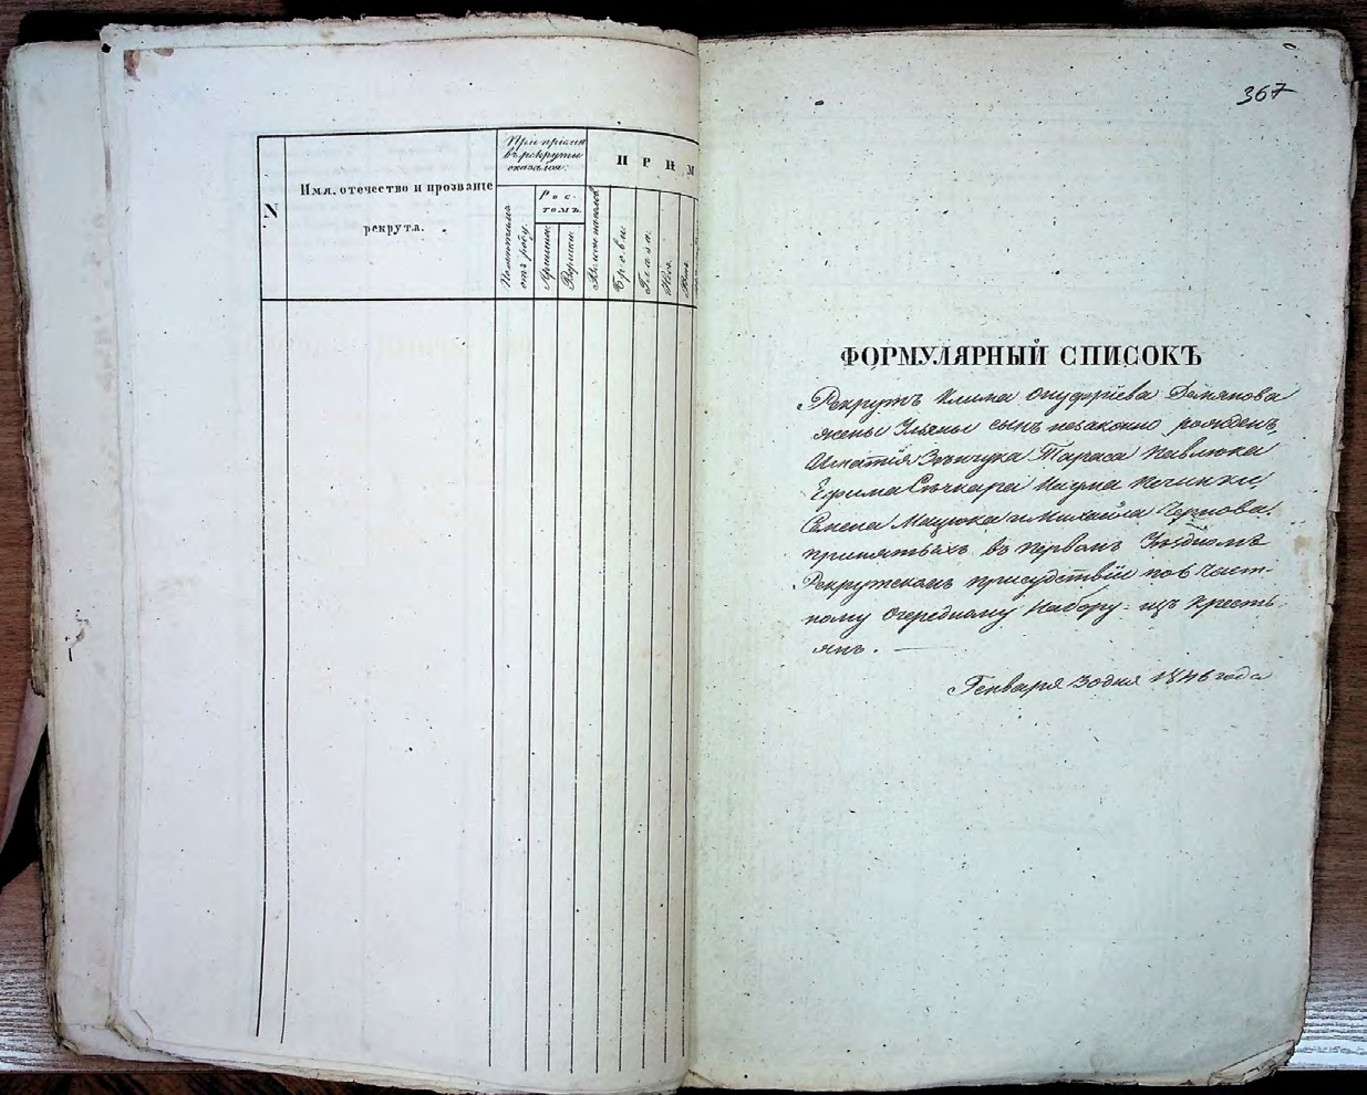 N
Имя, отечество и прозваніе
рекрута.
При пріемѣ
въ рекруты
оказался:
ПРИМ
Рос-
томъ.
отъ роду.
Аршинъ.
Вершки.
Брови.
Глаза.
Носъ.
367
ФОРМУЛЯРНЫЙ СПИСОКЪ
Рекрутъ Клима Онуфріева Демянова
жены Ульяны сынъ незаконно рожденъ,
Игнатія Тараса Павлюка
Ефима Сѣчкаря Наума Печинки
Семена Мацюка и Михайла Чернова
принятыхъ въ Первомъ Уѣздномъ
Рекрутскомъ присудствіи по 6 Част-
ному Очередному Набору изъ Кресть-
янъ.
Генваря 30 дня 1846 года